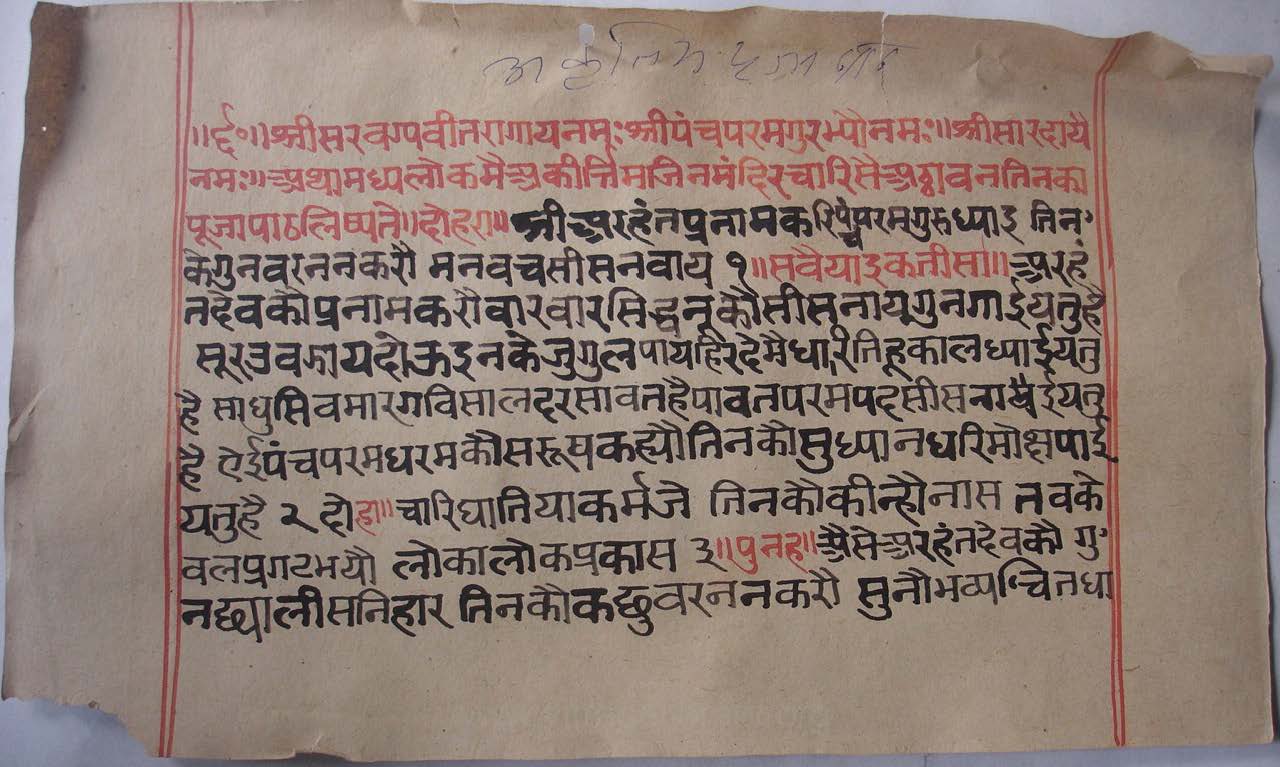 ॥ર્દ૦॥श्रीसरवग्पवीतरागायनमः श्रीपंचपरमगुरभ्यौनमः॥श्रीसारदायै
नमः॥अथामध्यलौकमैअकीर्त्तिमजिनमंदिरचारिसैअठ्ठावनतिनका
पूजापाठलिष्यते॥दोहरा॥श्रीअरहंतप्रनामकरिपंचपरमगुरुध्याइ तिन
केगुनवरननकरौ मनवचसीसनवाय १॥सवैयाइकतीसा॥अरहं
तदेवकौप्रनामकरौवारवारसिद्धनकौसीसनायगुनगाईयतुहै
सूरउवझायदोऊइनकेजुगुलपायहिरदेमैधारितिहूकालध्याईयतु
है साधुसिवमारगविसालदरसावतहैपावनपरमपदसीसनाईयतु
है एईपंचपरमधरमकौसरूपकह्यौतिनकौसुध्यानधरिमोक्षपाई
यतुहै २ दोहा॥चारिघातियाकर्मजे तिनकौकीन्हौनास तवके
वलप्रगटभयौ लोकालोकप्रकास ३॥पुनह॥अैसेअरहंतदेवकौ गु
नछ्यालीसनिहार तिनकौकछुवरननकरौ सुनौभव्यचितधा